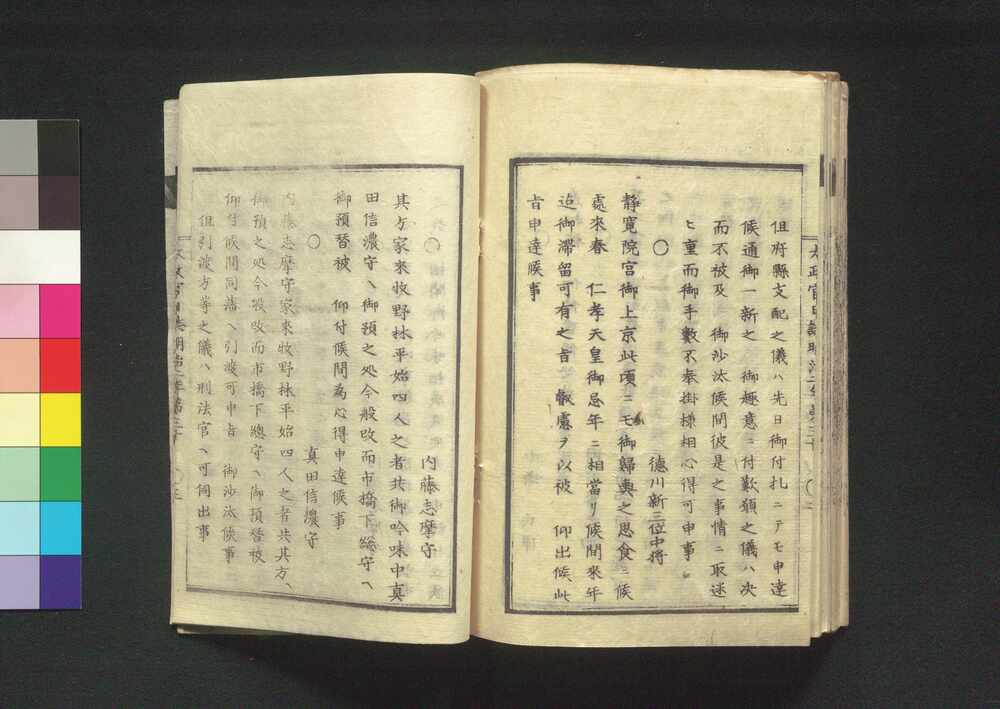 但府縣支配之儀ハ先日御付札ニテモ申達
候通御一新之　御趣意ニ付歎願之儀ハ次
而不被及　御沙汰候間彼是之事情ニ取迷
ヒ重而御手數不奉掛様相心得可申事
〇
徳川新三位中將
静寛院宮御上京此頃ニモ御歸輿之思食ニ候
處來春　仁孝天皇御忌年ニ相當リ候間來年
迠御滞留可有之旨　叡慮ヲ以被　仰出候此
旨申達候事
〇
内藤志摩守
其方家來牧野林平始四人之者共御吟味中真
田信濃守ヘ御預之処今般改而市橋下総守ヘ
御預替被　仰付候間為心得申達候事
〇
真田信濃守
内藤志摩守家來牧野林平始四人之者共其方ヘ
御預之処今般改而市橋下總守ヘ御預替被
仰付候間同藩ヘ引渡可申旨　御沙汰候事
但引渡方等之儀ハ刑法官ヘ可伺出事